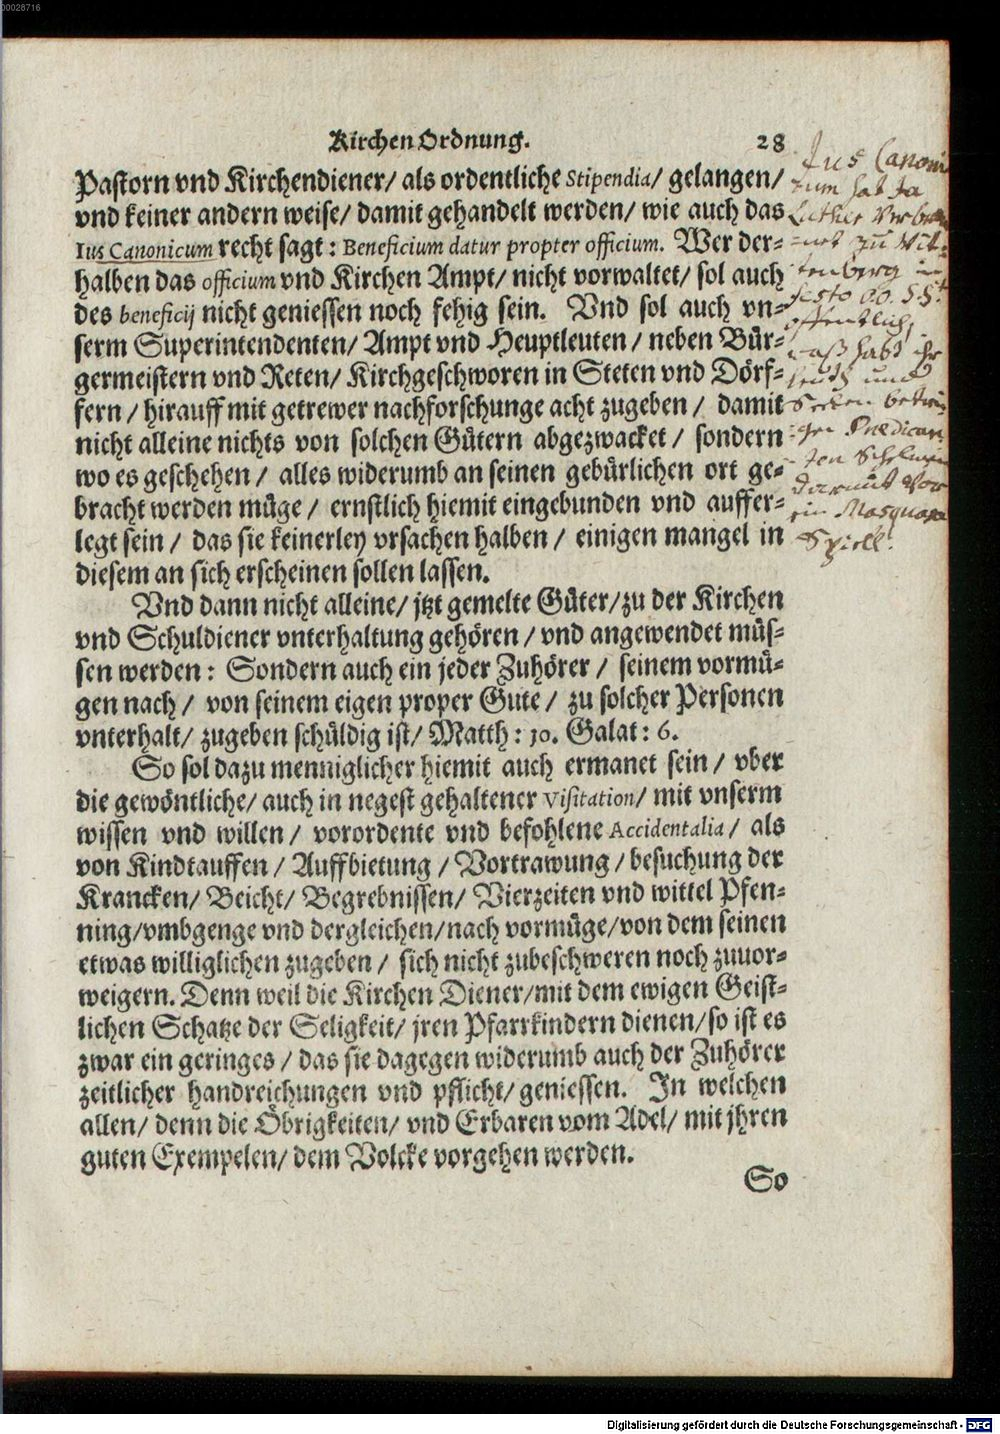 00028716
Kirchen Ordnung. 28
Pastorn vnd Kirchendiener/ als ordentliche Stipendia/ gelangen/
vnd keiner andern weise/ damit gehandelt werden/ wie auch das
Ius Canonicum recht sagt: Beneficium datur propter officium. Wer der-
halben das officium vnd Kirchen Ampt/ nicht vorwaltet/ sol auch
des beneficij nicht geniessen noch fehig sein. Vnd sol auch vn-
serm Superintendenten/ Ampt vnd Heuptleuten/ neben Bür-
germeistern vnd Reten/ Kirchgeschworen in Steten vnd Dörf-
fern/ hirauff mit getrewer nachforschunge acht zugeben/ damit
nicht alleine nichts von solchen Gütern abgezwacket/ sondern
wo es geschehen/ alles widerumb an seinen gebürlichen ort ge-
bracht werden müge/ ernstlich hiemit eingebunden vnd auffer-
legt sein/ das sie keinerley vrsachen halben/ einigen mangel in
diesem an sich erscheinen sollen lassen.
Vnd dann nicht alleine/ jtzt gemelte Güter/ zu der Kirchen
vnd Schuldiener vnterhaltung gehören/ vnd angewendet müs-
sen werden: Sondern auch ein jeder Zuhörer/ seinem vormü-
gen nach/ von seinem eigen proper Gute/ zu solcher Personen
vnterhalt/ zugeben schüldig ist/ Matth: 10. Galat: 6.
So sol dazu menniglicher hiemit auch ermanet sein/ vber
die gewöntliche/ auch in negest gehaltener Visitation/ mit vnserm
wissen vnd willen/ vorordente vnd befohlene Accidentalia/ als
von Kindtauffen/ Auffbietung/ Vortrawung/ besuchung der
Krancken/ Beicht/ Begrebnissen/ Vierzeiten vnd wittel Pfen-
ning/ vmbgenge vnd dergleichen/ nach vormüge/ von dem seinen
etwas williglichen zugeben/ sich nicht zubeschweren noch zuuor-
weigern. Denn weil die Kirchen Diener/ mit dem ewigen Geist-
lichen Schatze der Seligkeit/ jren Pfarrkindern dienen/ so ist es
zwar ein geringes/ das sie dagegen widerumb auch der Zuhörer
zeitlicher handreichungen vnd pflicht/ geniessen. In welchen
allen/ denn die Öbrigkeiten/ vnd Erbaren vom Adel/ mit jhren
guten Exempelen/ dem Volcke vorgehen werden.
So
Jus Canoni
cum hat Ja
Luther
zu Wit-
tenberg in
öffentlich,
habt ihr
und
Prædican
ten
ein
Spiell.
Digitalisierung gefördert durch die Deutsche Forschungsgemeinschaft - DFG